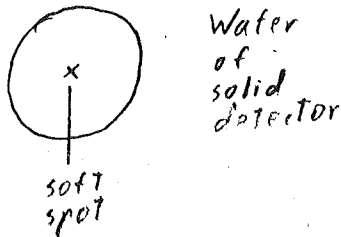 Wafer
of
solid
detector
x
soft
spot